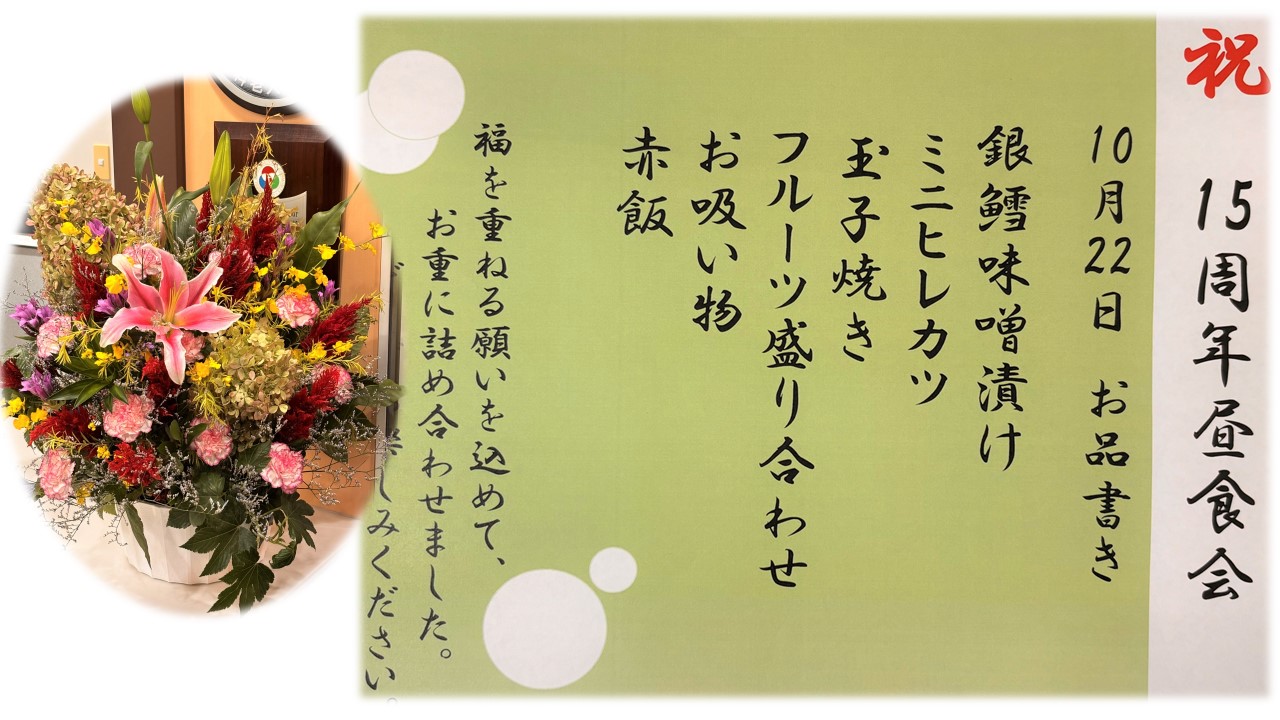 祝
15周年昼食会
10月22日 お品書き
銀鱈味噌漬け
ミニヒレカツ
玉子焼き
フルーツ盛り合わせ
お吸い物
赤飯
福を重ねる願いを込めて、
お重に詰め合わせました。
しみください。